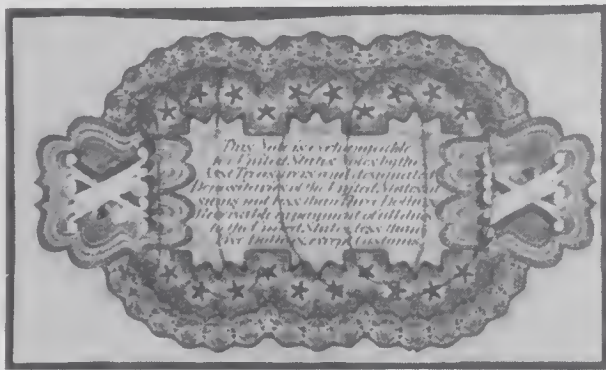 This Note is exchangeable
for United States Notes by the
Treasurers and designated
of the United States in
sums not less than Three Dollars
Receivable in payment of all dues
to the United States less than
Five Dollars, except Customs.